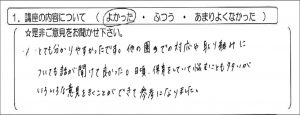 1. 講座の内容について ( よかった ・ ふつう ・ あまりよくなかった )
☆是非ご意見をお聞かせ下さい。
とても分かりやすかったです。他の園までの対応や取り組みに
ついても話が聞けて良かった。日頃、保育をしていて悩むことも多いが
いろいろな意見をきくことができて参考になりました。